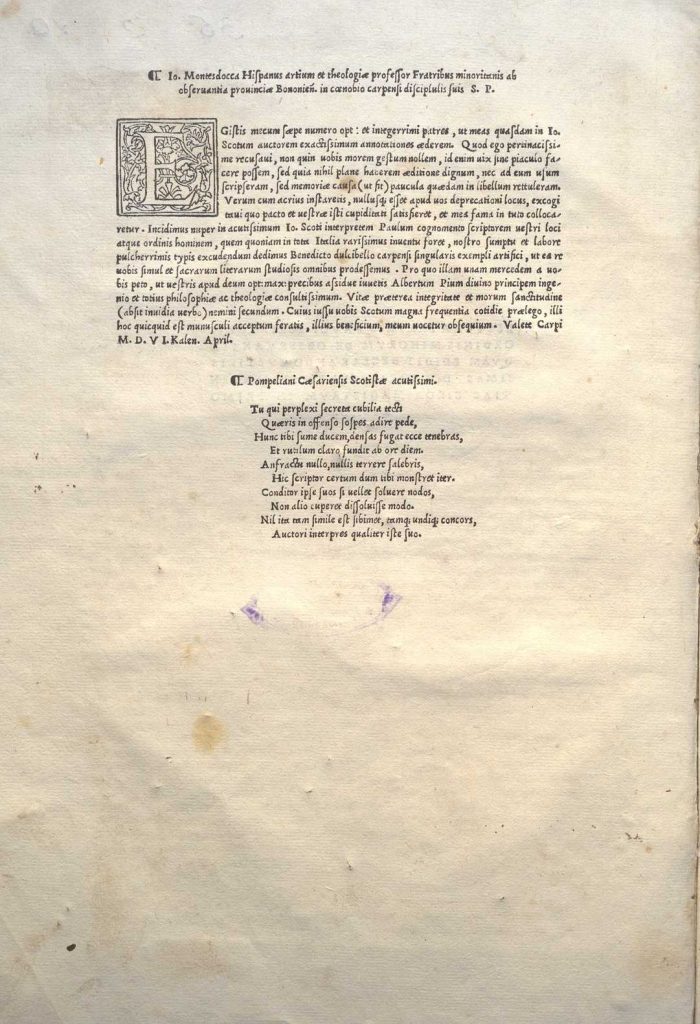 ¶ Io. Montesdocca Hispanus artium et theologiæ professor Fratribus minoritanis ab
obseruantia prouinciæ Bononieñ. in cœnobio carpensi discipulis suis S. P.
EGistis mecum sæpe numero opt: et integerrimi patres, ut meas quasdam in Io.
Scotum auctorem exactissimum annotationes æderem. Quod ego pertinacissi-
me recusaui, non quin uobis morem gestum nollem, id enim uix sine piaculo fa-
cere possem, sed quia nihil plane haberem æditione dignum, nec ad eum usum
scripseram, sed memoriæ causa (ut fit) paucula quædam in libellum rettuleram.
Verum cum acrius instaretis, nullusq; esset apud uos deprecationi locus, excogi
taui quo pacto et uestræ isti cupiditati satisfieret, et mea fama in tuto colloca-
retur. Incidimus nuper in acutissimum Io. Scoti interpretem Paulum cognomento scriptorem uestri loci
atque ordinis hominem, quem quoniam in tota Italia rarissimus inuentu foret, nostro sumptu et labore
pulcherrimis typis excudendum dedimus Benedicto dulcibello carpensi singularis exempli artifici, ut ea re
uobis simul et sacrarum literarum studiosis omnibus prodessemus. Pro quo illam unam mercedem a uo-
bis peto, ut uestris apud deum opt: max: precibus assidue iuuetis Albertum Pium diuino principem inge-
nio et totius philosophiæ ac theologiæ consultissimum. Vitæ præterea integritate et morum sanctitudine
(absit inuidia uerbo) nemini secundum. Cuius iussu uobis Scotum magna frequentia cotidie prælego, illi
hoc quicquid est munusculi acceptum feratis, illius beneficium, meum uocetur obsequium. Valete Carpi
M. D. V I. Kalen. April.
¶ Pompeliani Cæsariensis Scotistæ acutissimi.
Tu qui perplexi secreta cubilia tecti
Quæris in offenso sospes adire pede,
Hunc tibi sume ducem, densas fugat ecce tenebras,
Et rutilum claro fundit ab ore diem.
Anfractu nullo, nullis terrere salebris,
Hic scriptor certum dum tibi monstret iter.
Conditor ipse suos si uellet soluere nodos,
Non alio cuperet dissoluisse modo.
Nil ita tam simile est sibimet, tamq; undiq; concors,
Auctori interpres qualiter iste suo.